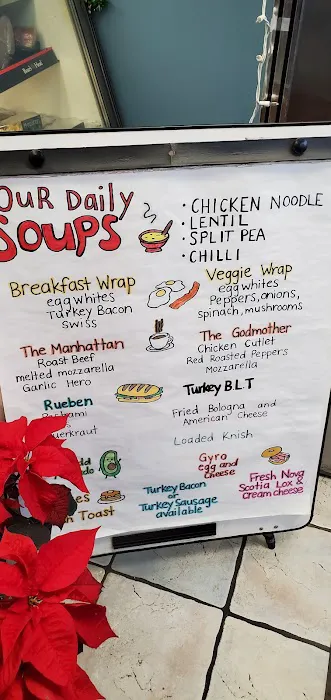 Boar's Head
OUR Daily
SOUPS
• CHICKEN NOODLE
• LENTIL
• SPLIT PEA
• CHILLI
Breakfast Wrap
egg whites
Turkey Bacon
Swiss
Veggie Wrap
egg whites
Peppers, onions,
spinach, mushrooms
The Manhattan
Roast Beef
melted mozzarella
Garlic Hero
The Godmother
Chicken Cutlet
Red Roasted Peppers
Mozzarella
Rueben
Turkey B L T
Fried Bologna and
American Cheese
Loaded Knish
Gyro
egg and
cheese
Toast
Turkey Bacon
or
Turkey Sausage
available
Fresh Nova
Scotia Lox &
cream cheese